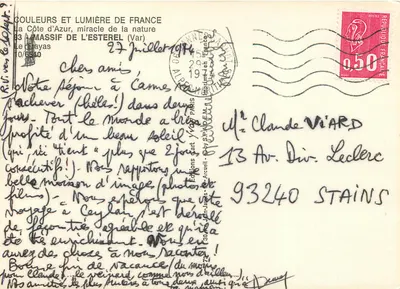 COULEURS ET LUMIÈRE DE FRANCE
La Côte d'Azur, miracle de la nature
83 MASSIF DE L'ESTEREL (Var)
Le Drayas
10/6840
27 juillet 1974
Chers amis,
Notre séjour à Cannes va
s'achever (hélas!) dans deux
jours. Tout le monde a bien
profité d'un beau soleil
qui, ici "tient" plus que 2 jours
consécutifs!). Nous rapportons une
belle moisson d'images (photos et
films). Nous espérons que votre
voyage à Ceylan s'est déroulé
de façon très agréable et qu'il a
été très enrichissant. Vous en
aurez des choses à nous raconter!
Bonne fin de vacances (du moins
pour Claude, le veinard, comme nous d'ailleurs!).
Nos amitiés les plus sincères à tous deux, ainsi qu'à
Mr Claude VIARD
13 Av. Div. Leclerc
93240 STAINS
0,50